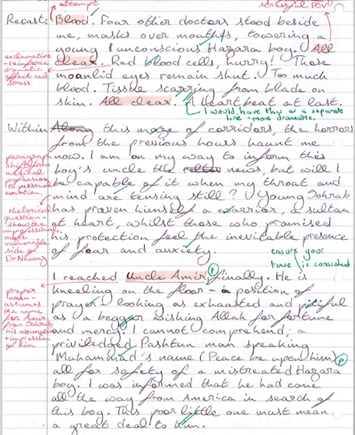 attempt
Recast: Blood. Four other doctors stood beside
me, masks over mouths, towering a
young & unconscious Hazara boy. All
clear. Red blood cells, hurry! Those
moonlid eyes remain shut. Too much
blood. Tissue scarring from blade on
skin. All clear. A heartbeat at last.
I would have this as a separate
line - more dramatic.
Within this maze of corridors, the horrors
from the previous hours haunt me
now. I am on my way to inform this
boy's uncle the news, but will I
be capable of it when my throat and
mind are tensing still? Young Sohrab
has proven himself a warrior, a sultan
at heart, whilst those who promised
his protection feel the inevitable presence
of fear and anxiety.
ensure your
tense is consistent
I reached Uncle Amir finally. He is
kneeling on the floor - a position of
prayer - looking as exhausted and pitiful
as a beggar wishing Allah for fortune
and mercy. I cannot comprehend; a
priviledged Pashtun man speaking
Muhammad's name (Peace be upon him)
all for safety of a mistreated Hazara
boy. I was informed that he had come
all the way from America in search of
this boy. This poor little one must mean
a great deal to him.
rhetorical
question -
proper
noun -